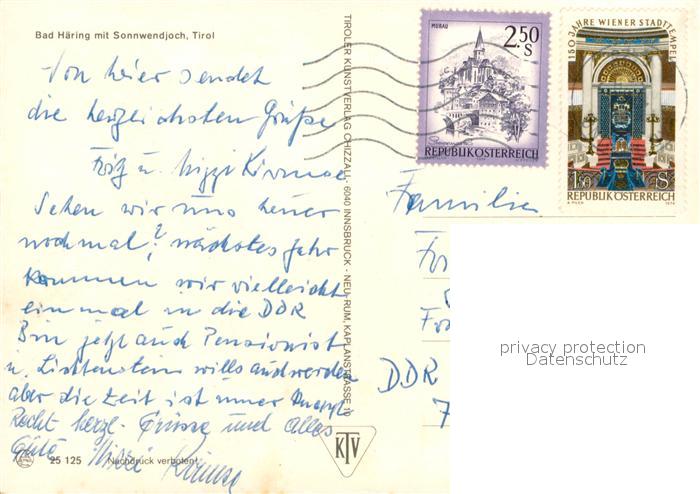 Bad Häring mit Sonnwendjoch, Tirol
Von hier sendet
die herzlichsten Grüße
Fritz u.
Sehen wir uns heuer
nochmal? nächstes Jahr
kommen wir vielleicht
einmal in die DDR
Bin jetzt auch Pensionist
u. Lichtenstein wills auch werden
aber die Zeit ist immer
Recht herzl. Grüsse und alles
Gute
25 125 Nachdruck verboten!
TIROLER KUNSTVERLAG CHIZZALI, 6040 INNSBRUCK - NEU-RUM, KAPLANSTRASSE 10
KTV
MURAU
2.50
S
REPUBLIK ÖSTERREICH
150 JAHRE WIENER STADTTEMPEL
1.50 S
REPUBLIK ÖSTERREICH
Familie
DDR
7
privacy protection
Datenschutz